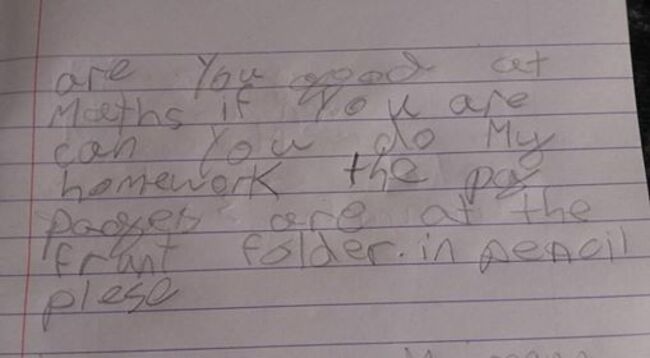 are you good at
Maths if you are
can you do My
homework the pag
pages are at the
frunt folder. in pencil
plese